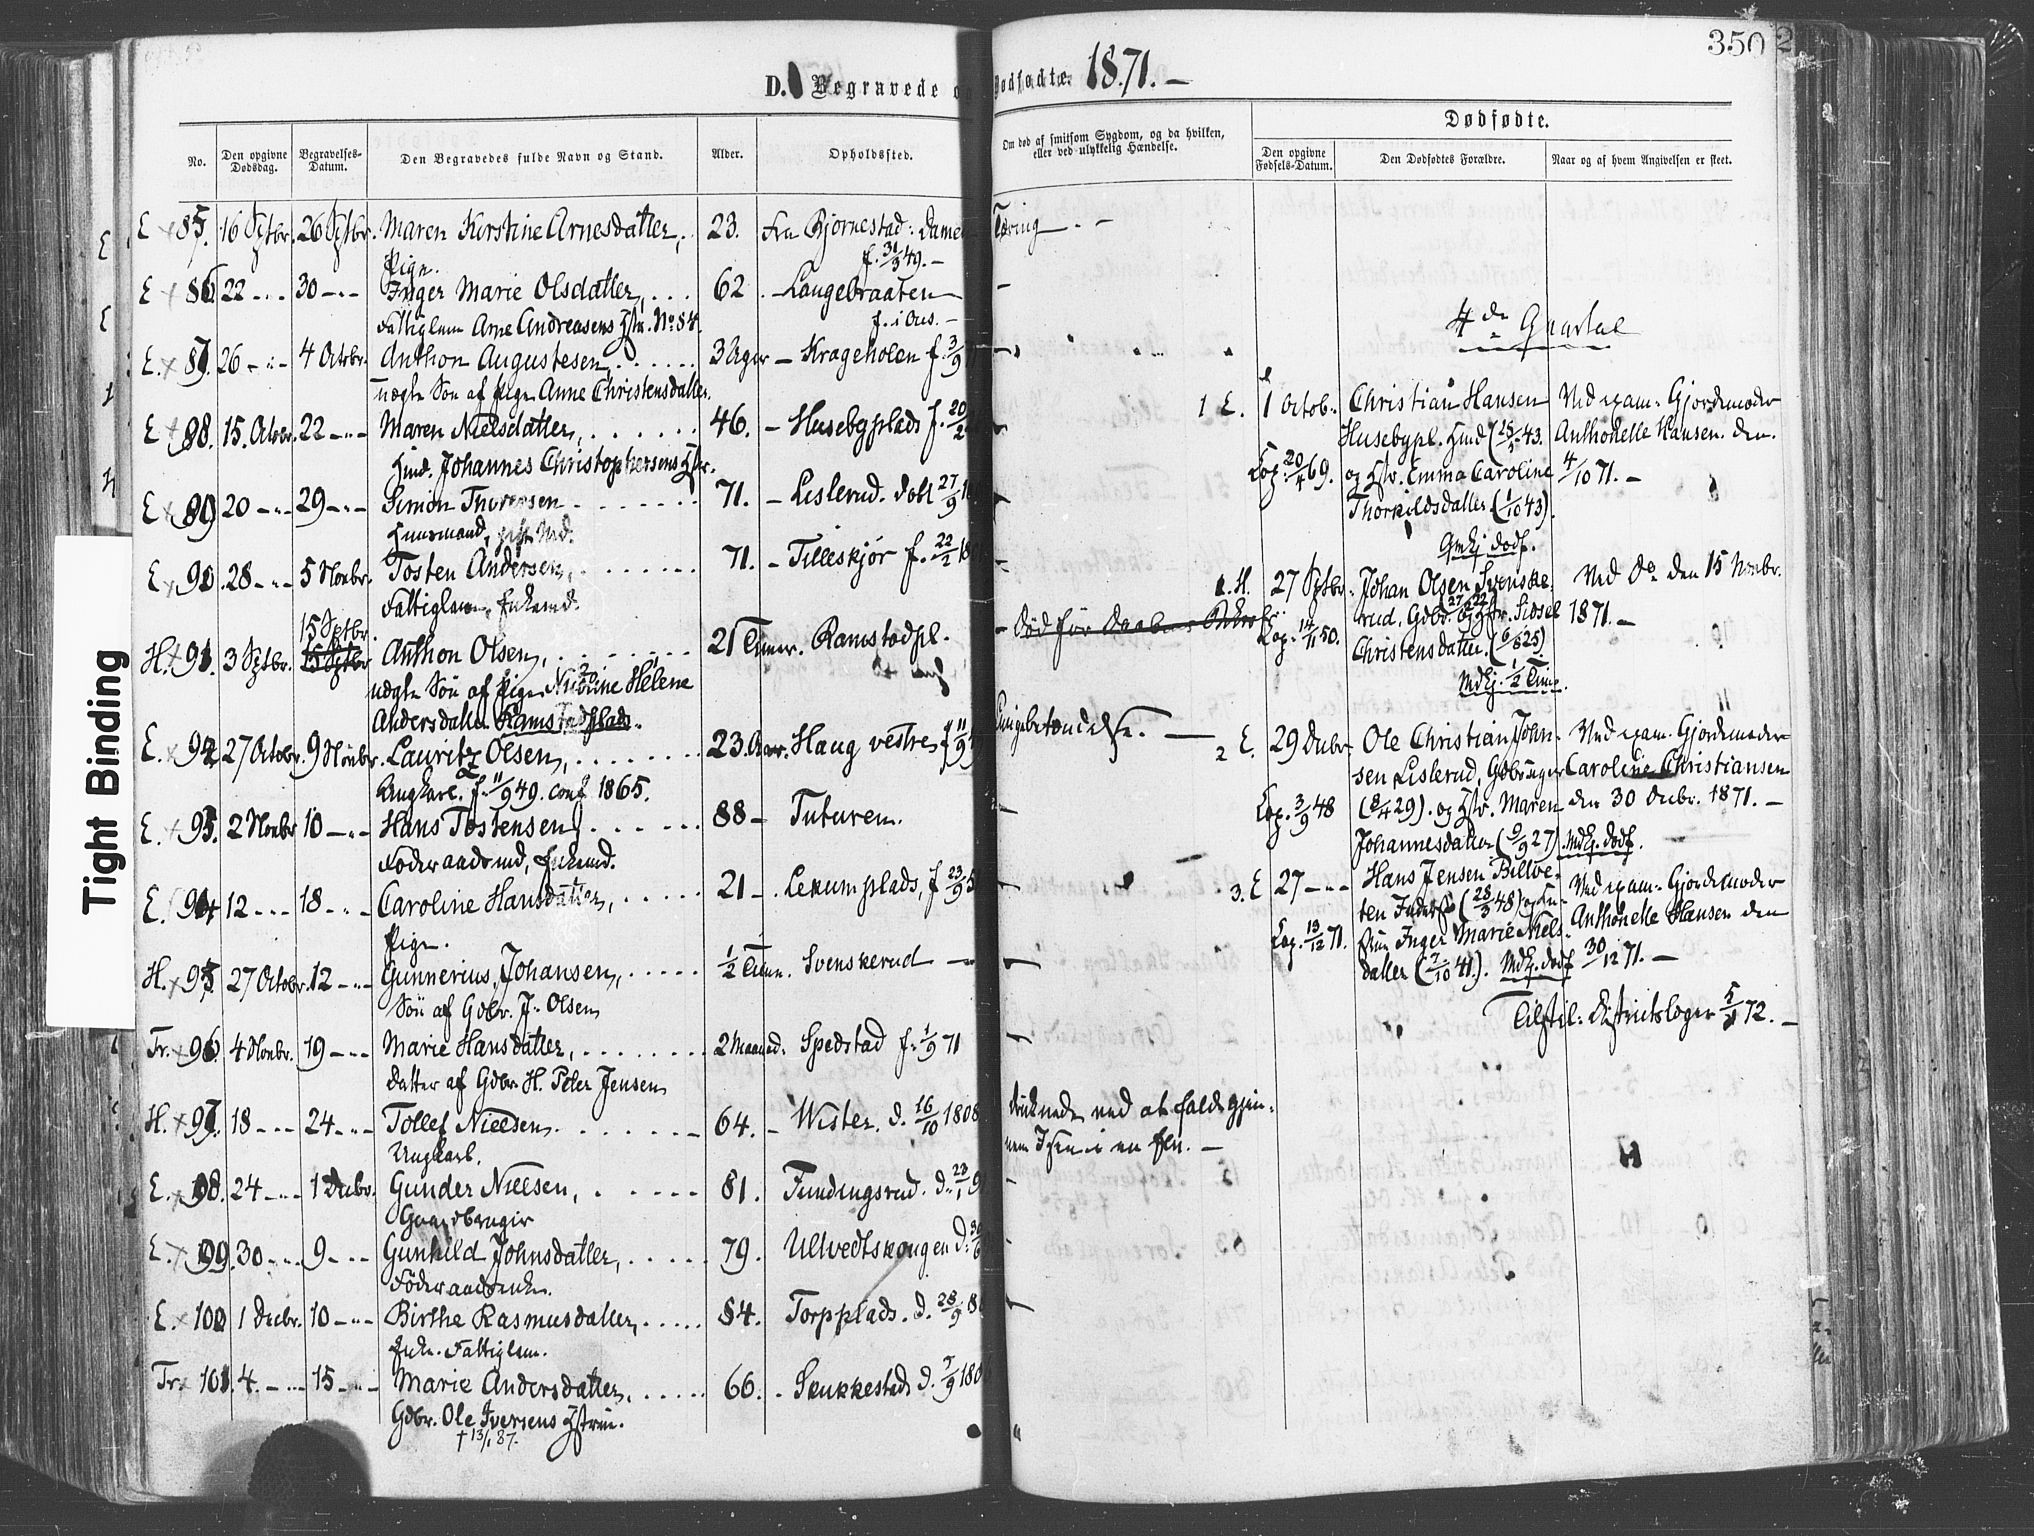 350
2
D. Begravede og Dødfødte. 1871. –
No.
Den opgivne Dødsdag.
Begravelses-Datum.
Den Begravedes fulde Navn og Stand.
Alder.
Opholdssted.
Om død af smitsom Sygdom, og da hvilken, eller ved ulykkelig Hændelse.
Dødfødte.
Den opgivne Fødsels-Datum.
Den Dødfødtes Forældre.
Naar og af hvem Angivelsen er skeet.
E × 85. 16 Sptbr. 26 Sptbr. Maren Kirstine Arnesdatter, 23. fra Bjørnestad: Damen Tæring - -
Pige. f. 31/3 49. –
E × 86 22 - - - 30 - - - Inger Marie Olsdatter, . . . 62 . – Langebraaten –
Fattiglem Arne Andreasens Hstr. No 84. f. i Aas. –
E. × 87. 26 - - - 4 Octobr. Anthon Augustesen, . . . . . . 3 Uger – Krageholen f. 3/9 71 –
uægte Søn af Pige Anne Christensdatter.
E × 88. 15. Octobr. 22 - - - Maren Nielsdatter, . . . . . . 46. – Husebyplads f. 20/2
Husmd. Johannes Christophersens Hstr.
E × 89 20 - - - 29 - - - Simon Thoresen . . . . . . 71. – Lislerud. døbt 27/9 18
Huusmand, gift Md.
E × 90 28 - - - 5 Novbr. Tosten Andersen, . . . . . . 71. – Tilleskjør f. 22/2 18
Fattiglem, Enkemd.
15 Sptbr.
H. × 91. 3 Sptbr. 15 Sptbr Anthon Olsen, . . . . . . 21 Timer. Ramstadpl. – Død før Daaben
uægte Søn af Pige Nicoline Helene
Andersdatter Ramstadplads.
E. × 92 27 Octobr. 9 Novbr. Lauritz Olsen, . . . . . . 23. Aar. Haug vestre f. 11/9 49 Lungebetændelse. –
Ungkarl. f. 11/9 49. conf 1865.
E. × 93. 2 Novbr 10 - - - Hans Tostensen, . . . . . . 88 – Tuturen. –
Føderaadsmd, Enkemd.
E. 94 12 - - - 18 - - - Caroline Hansdatter, . . . . . 21 – . Lekumplads, f 23/9 5
Pige.
H. × 95 27 Octobr. 12 - - - Gunnerius Johansen, . . . . . 1/2 Time. Svenskerud –
Søn af Gdbr. J. Olsen
Tr. × 96. 4 Novbr. 19 - - - Marie Hansdatter, . . . . . . 2 Maaned. Spedstad f. 1/9 71
Datter af Gdbr H. Peter Jensen
H. × 97. 18 - - - 24 - - - Tollef Nielsen . . . . . . 64. – Wister. d. 16/10 1808 druknede ved at falde gjen-
Ungkarl. nem Isen i en Elv. –
E. × 98. 24 - - - 1 Decbr. Gunder Nielsen, . . . . . . 81. Fundingsrud. d. 23/1 9
Gaardbruger
E. × 99. 30 - - - 9 - - - Gunhild Johnsdatter, . . . . . 79. Ultvedtskougen d. 30/
Føderaadsenke.
E. × 100 1 Decbr. 10 - - - Birthe Rasmusdatter, . . . . . 84. Torpplads. d. 28/9 8
Enke. Fattiglem.
Tr. × 101. 4. - - - 15 - - - Marie Andersdatter, . . . . . 66. – Skukkestad d. 7/9 180
Gdbr. Ole Iversens Hstru.
† 13/1 87.
4de Qvartal
1 E. 1 Octob. Christian Hansen Ved exam. Gjordemoder
Husebypl. Husmd (15/ 43. Anthonette Hansen. den.
Cop. 20/4 69. og Hstr. Emma Caroline 4/10 71. –
Thorkildsdatter. (1/10 43).
Qmkj. Dødf.
H. 27 Sptbr. Johan Olsen Svenske- Ved Do den 15 Novbr.
rud, Gdbr. 27/2 22 og Hstr. Sidsel 1871. –
Cop. 14/11 50. Christensdatter. (6/8 25).
Mdkj. 1/2 Time.
2 E. 29 Decbr Ole Christian John- Ved exam. Gjordemoder
sen Lislerud, Gdbruger Caroline Christiansen
Cop. 3/9 48 (8/4 29). og Hstr. Maren den 30 Decbr. 1871. –
Johannesdatter (9/9 27). Mdkj. dødf.
3. E 27 - - - Hans Jensen Billve- Ved exam. Gjordemoder
ten Inderst (28/3 48) og Hu- Anthonette Hansen den
Cop. 13/12 71. stru Inger Marie Niels- 30/12 71. –
datter (7/10 41). Mdkj. dødf
Tilstil: Districtslægen 5/1 72. –
Tight Binding